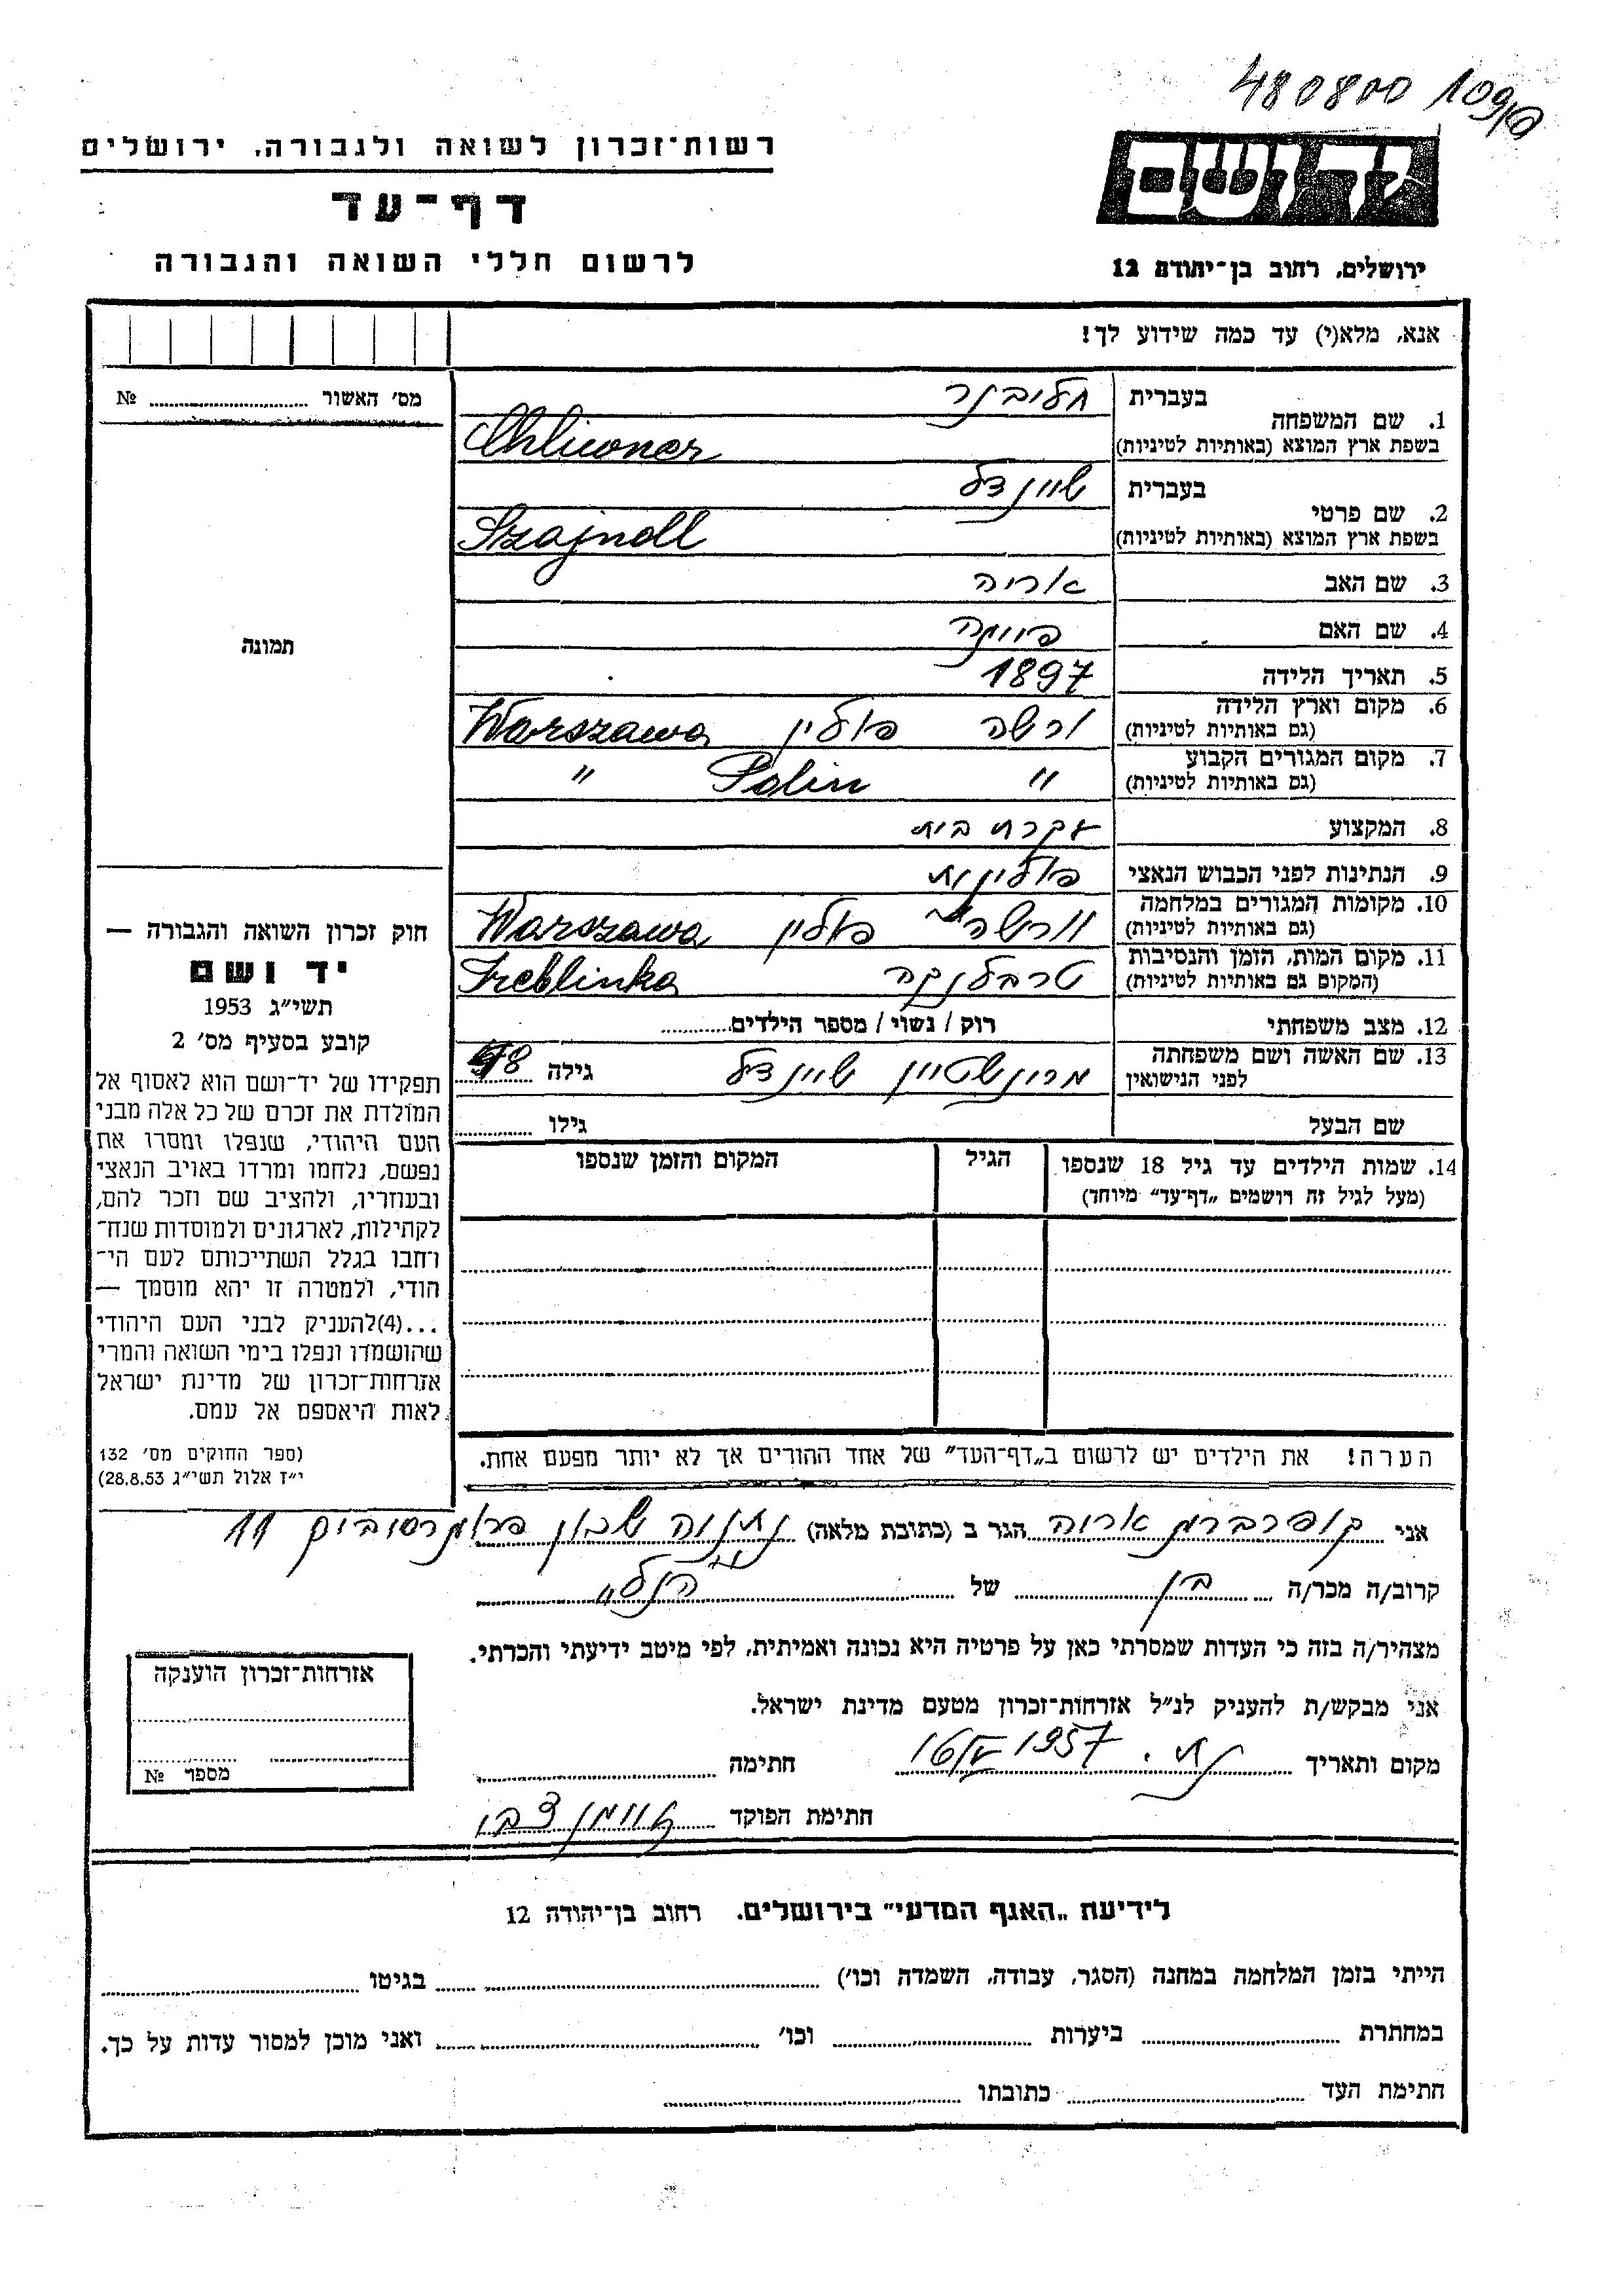 480800
רשות־זכרון לשואה ולגבורה, ירושלים
דף־עד
לרשום חללי השואה והגבורה
ידושם
ירושלים, רחוב בן־יהודה 12
אנא, מלא(י) עד כמה שידוע לך!
מס׳ האשור № 
תמונה
חוק זכרון השואה והגבורה —
יד ושם
תשי״ג 1953
קובע בסעיף מס׳ 2
תפקידו של יד־ושם הוא לאסוף אל
המולדת את זכרם של כל אלה מבני
העם היהודי, שנפלו ומסרו את
נפשם, נלחמו ומרדו באויב הנאצי
ובעוזריו, ולהציב שם וזכר להם,
לקהילות, לארגונים ולמוסדות שנח־
רחבו בגלל השתייכותם לעם הי־
הודי, ולמטרה זו יהא מוסמך —
...(4)להעניק לבני העם היהודי
שהושמדו ונפלו בימי השואה והמרי
אזרחות־זכרון של מדינת ישראל
לאות היאספם אל עמם.
(ספר החוקים מס׳ 132
י״ז אלול תשי״ג 28.8.53)
1. שם המשפחה בעברית חליבנר
בשפת ארץ המוצא (באותיות לטיניות) Chliwner
2. שם פרטי בעברית שיינדל
בשפת ארץ המוצא (באותיות לטיניות) Szajndl
3. שם האב אריה
4. שם האם
5. תאריך הלידה 1897
6. מקום וארץ הלידה ורשה פולין Warszawa
(גם באותיות לטיניות)
7. מקום המגורים הקבוע " Polin "
(גם באותיות לטיניות)
8. המקצוע עקרת בית
9. הנתינות לפני הכבוש הנאצי פולינית
10. מקומות המגורים במלחמה וורשה פולין Warszawa
(גם באותיות לטיניות)
11. מקום המות, הזמן והנסיבות טרבלנקה Treblinka
(המקום גם באותיות לטיניות)
12. מצב משפחתי רוק / נשוי / מספר הילדים
13. שם האשה ושם משפחתה שיינדל גילה
לפני הנישואין
שם הבעל גילו
14. שמות הילדים עד גיל 18 שנספו הגיל המקום והזמן שנספו
(מעל לגיל זה רושמים „דף־עד״ מיוחד)
הערה! את הילדים יש לרשום ב„דף־העד״ של אחד ההורים אך לא יותר מפעם אחת.
אני אריה הגר ב (כתובת מלאה) נתניה שכון 11
קרוב/ה מכר/ה בן של הנ״ל
מצהיר/ה בזה כי העדות שמסרתי כאן על פרטיה היא נכונה ואמיתית, לפי מיטב ידיעתי והכרתי.
אני מבקש/ת להעניק לנ״ל אזרחות־זכרון מטעם מדינת ישראל.
מקום ותאריך נת. 1957 חתימה
חתימת הפוקד
אזרחות־זכרון הוענקה
מספר №
לידיעת „האגף המדעי״ בירושלים. רחוב בן־יהודה 12
הייתי בזמן המלחמה במחנה (הסגר, עבודה, השמדה וכו׳) בגיטו
במחתרת ביערות וכו׳ ואני מוכן למסור עדות על כך.
חתימת העד כתובתו